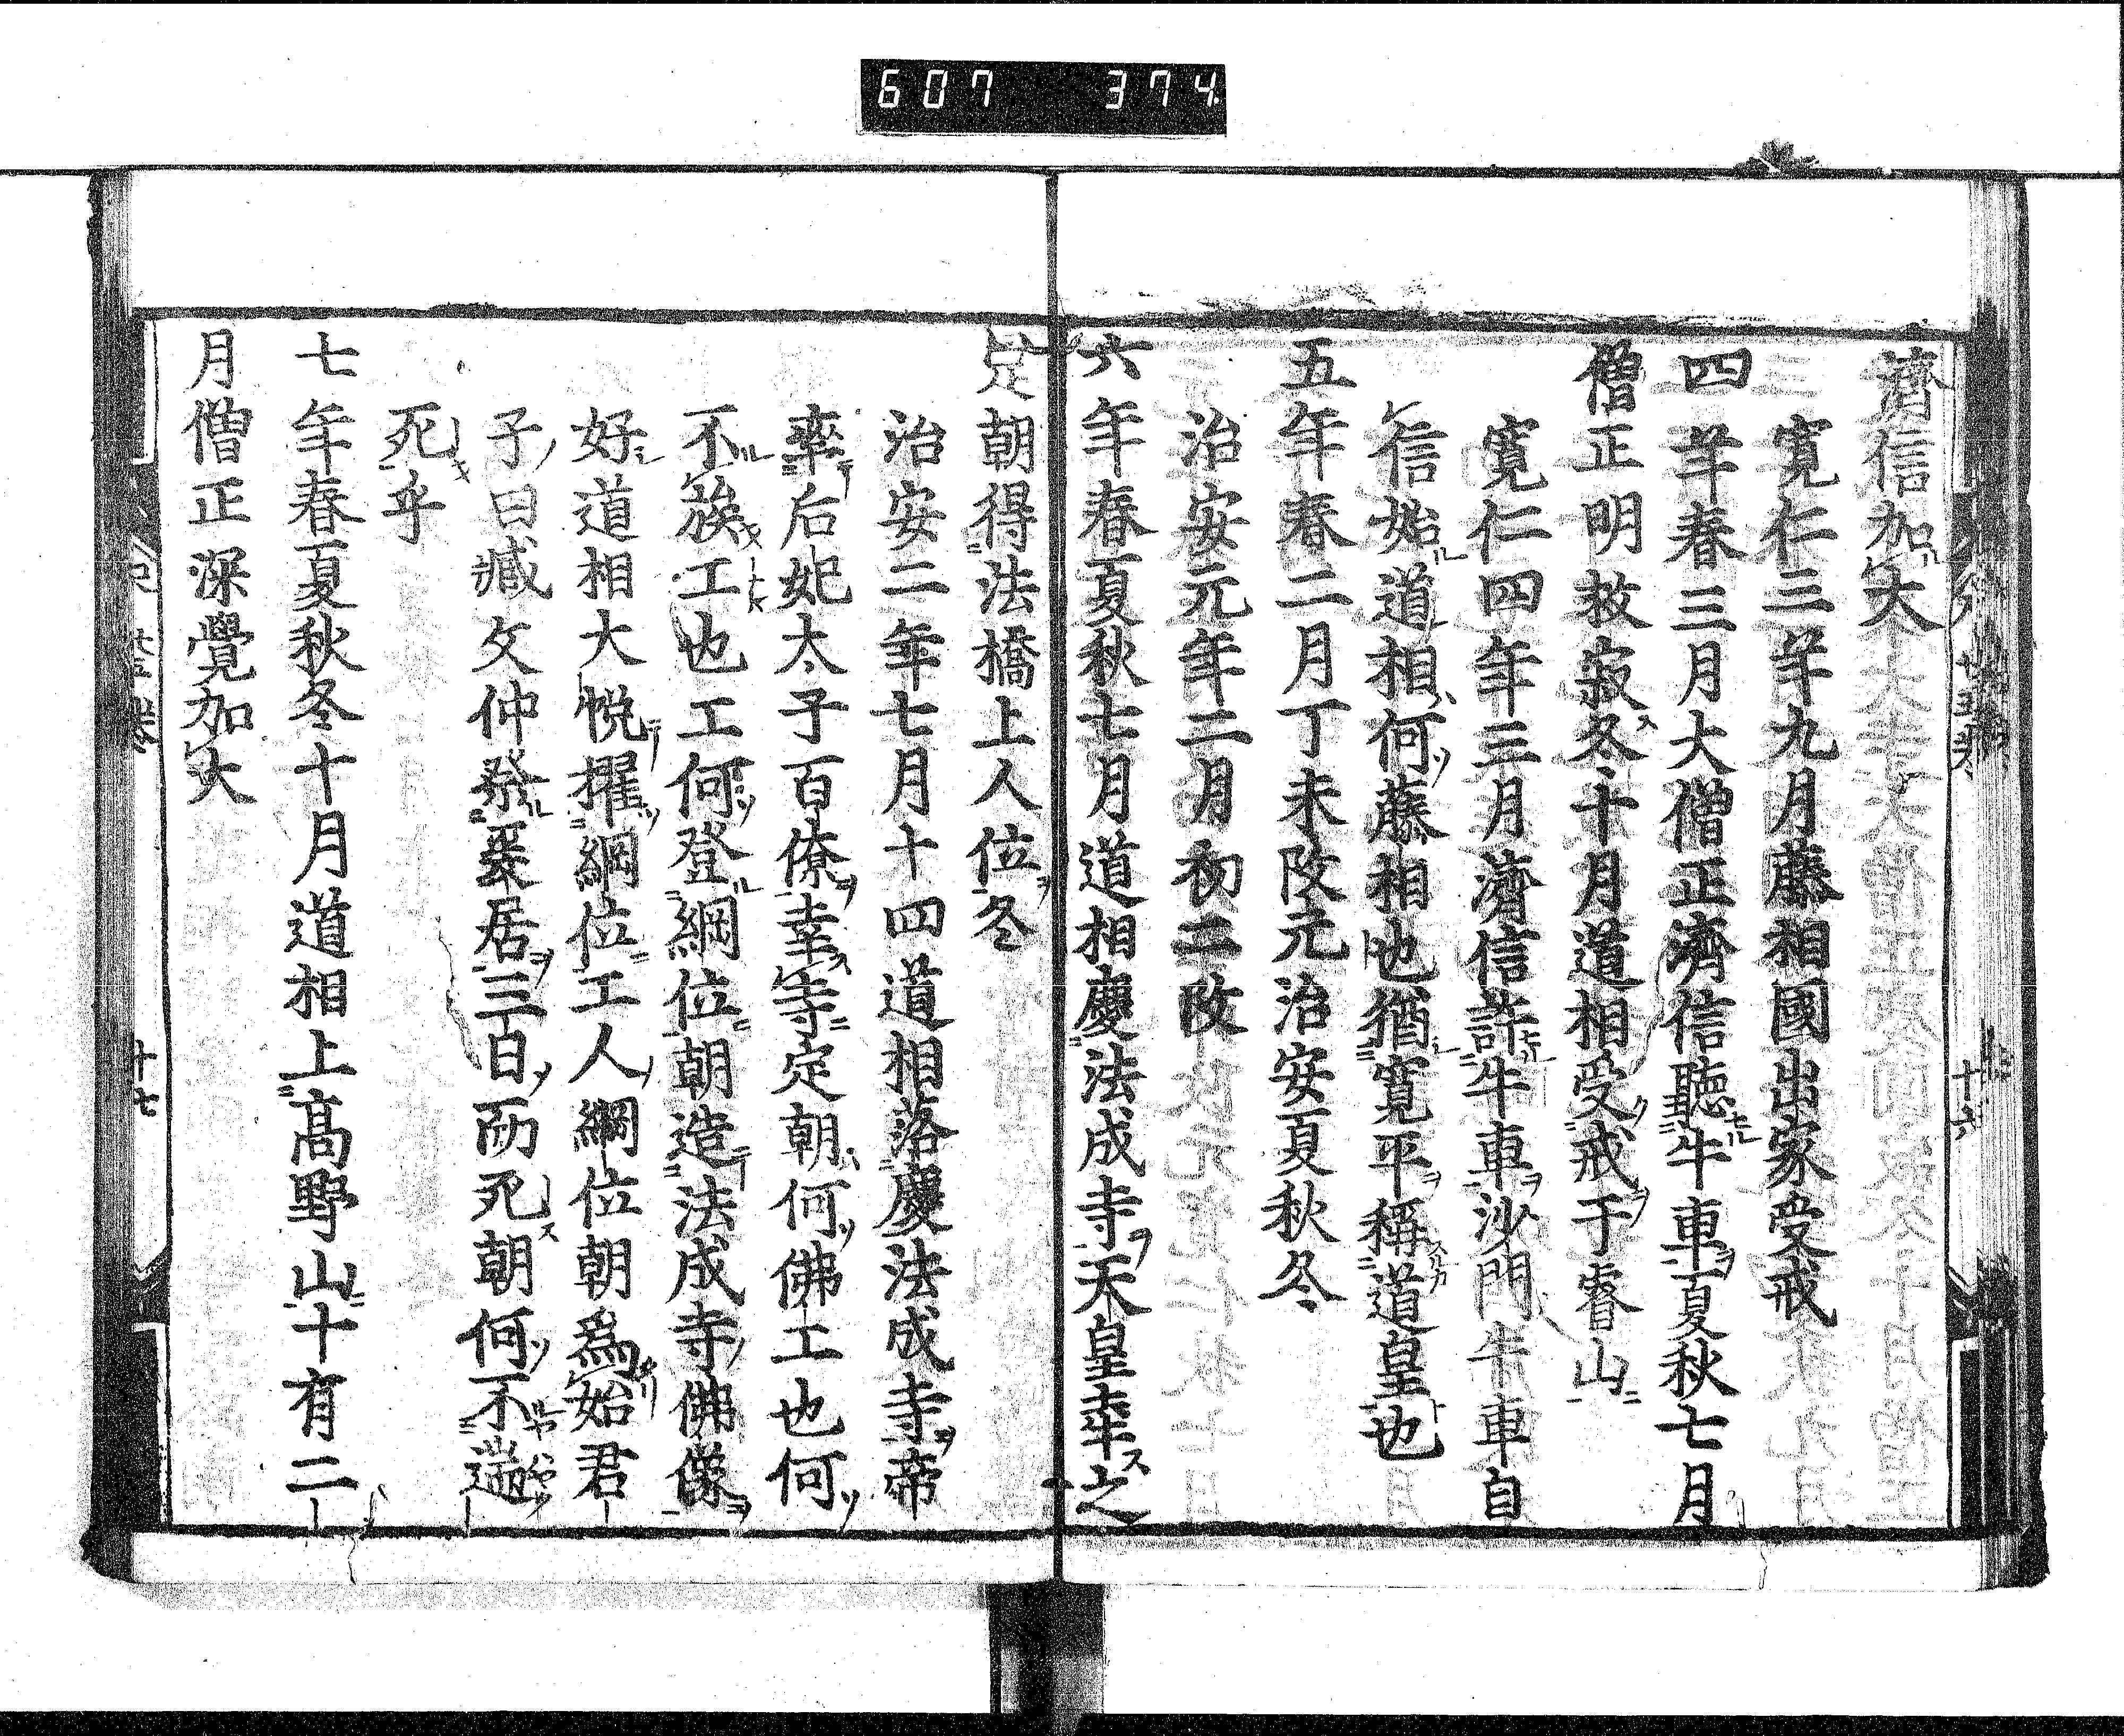 607 374
濟信加大
寛仁三年九月藤相國出家受戒
四年春三月大僧正濟信聴牛車夏秋七月
僧正明救寂冬十月道相受戒于睿山
寛仁四年三月濟信許牛車沙門牛車自
信始道相何藤相也猶寛平稱道皇也
五年春二月丁未改元治安夏秋冬
治安元年二月初二改
六年春夏秋七月道相慶法成寺天皇幸之
定朝得法橋上人位冬
治安二年七月十四道相落慶法成寺帝
率后妃太子百僚幸寺定朝何佛工也何
不族工也工何登綱位朝造法成寺佛像
好道相大悦擢綱位工人綱位朝爲始君
子曰臧文仲祭爰居三日而死朝何不遄
死乎
七年春夏秋冬十月道相上髙野山十有二
月僧正深覺加大
十六
十七